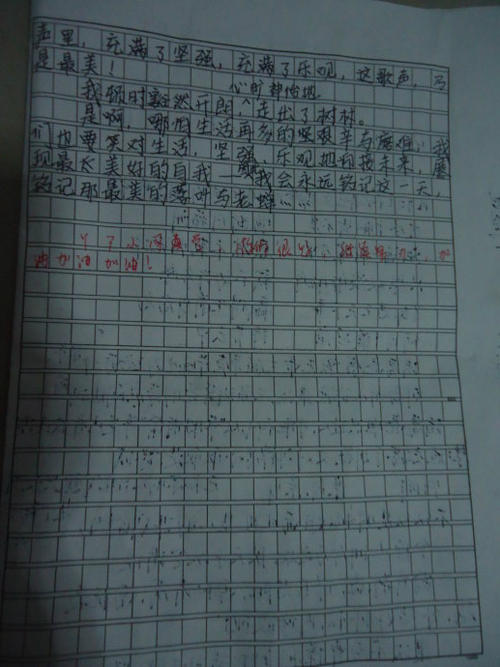 声里，充满了坚强，充满了乐观，这歌声，乃
是最美！
心旷神怡地
我顿时豁然开朗，走出了树林。
是啊，哪怕生活再多的艰辛与磨难，我
们也要笑对生活，坚强、乐观地迎接未来，展
现最美好的自我——我会永远铭记这一天，
铭记那最美的落叶与老蝉……
加
油加油加油！